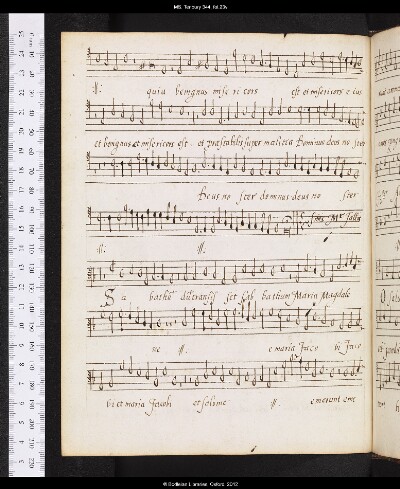 MS. Tenbury 344, fol.23v
quia benignus mise ri cors est et misericors e ius
et benignus et misericors est et præstabilis super malitia Dominus deus no ster
Deus no ster dominus deus no ster
finis Mr Tallis
Su bathū dū transiss set Sab bathum Maria Magdale
ne e maria Jaco bi Jaco
bi et maria Jacobi et salome emerunt eme
© Bodleian Libraries, Oxford, 2012